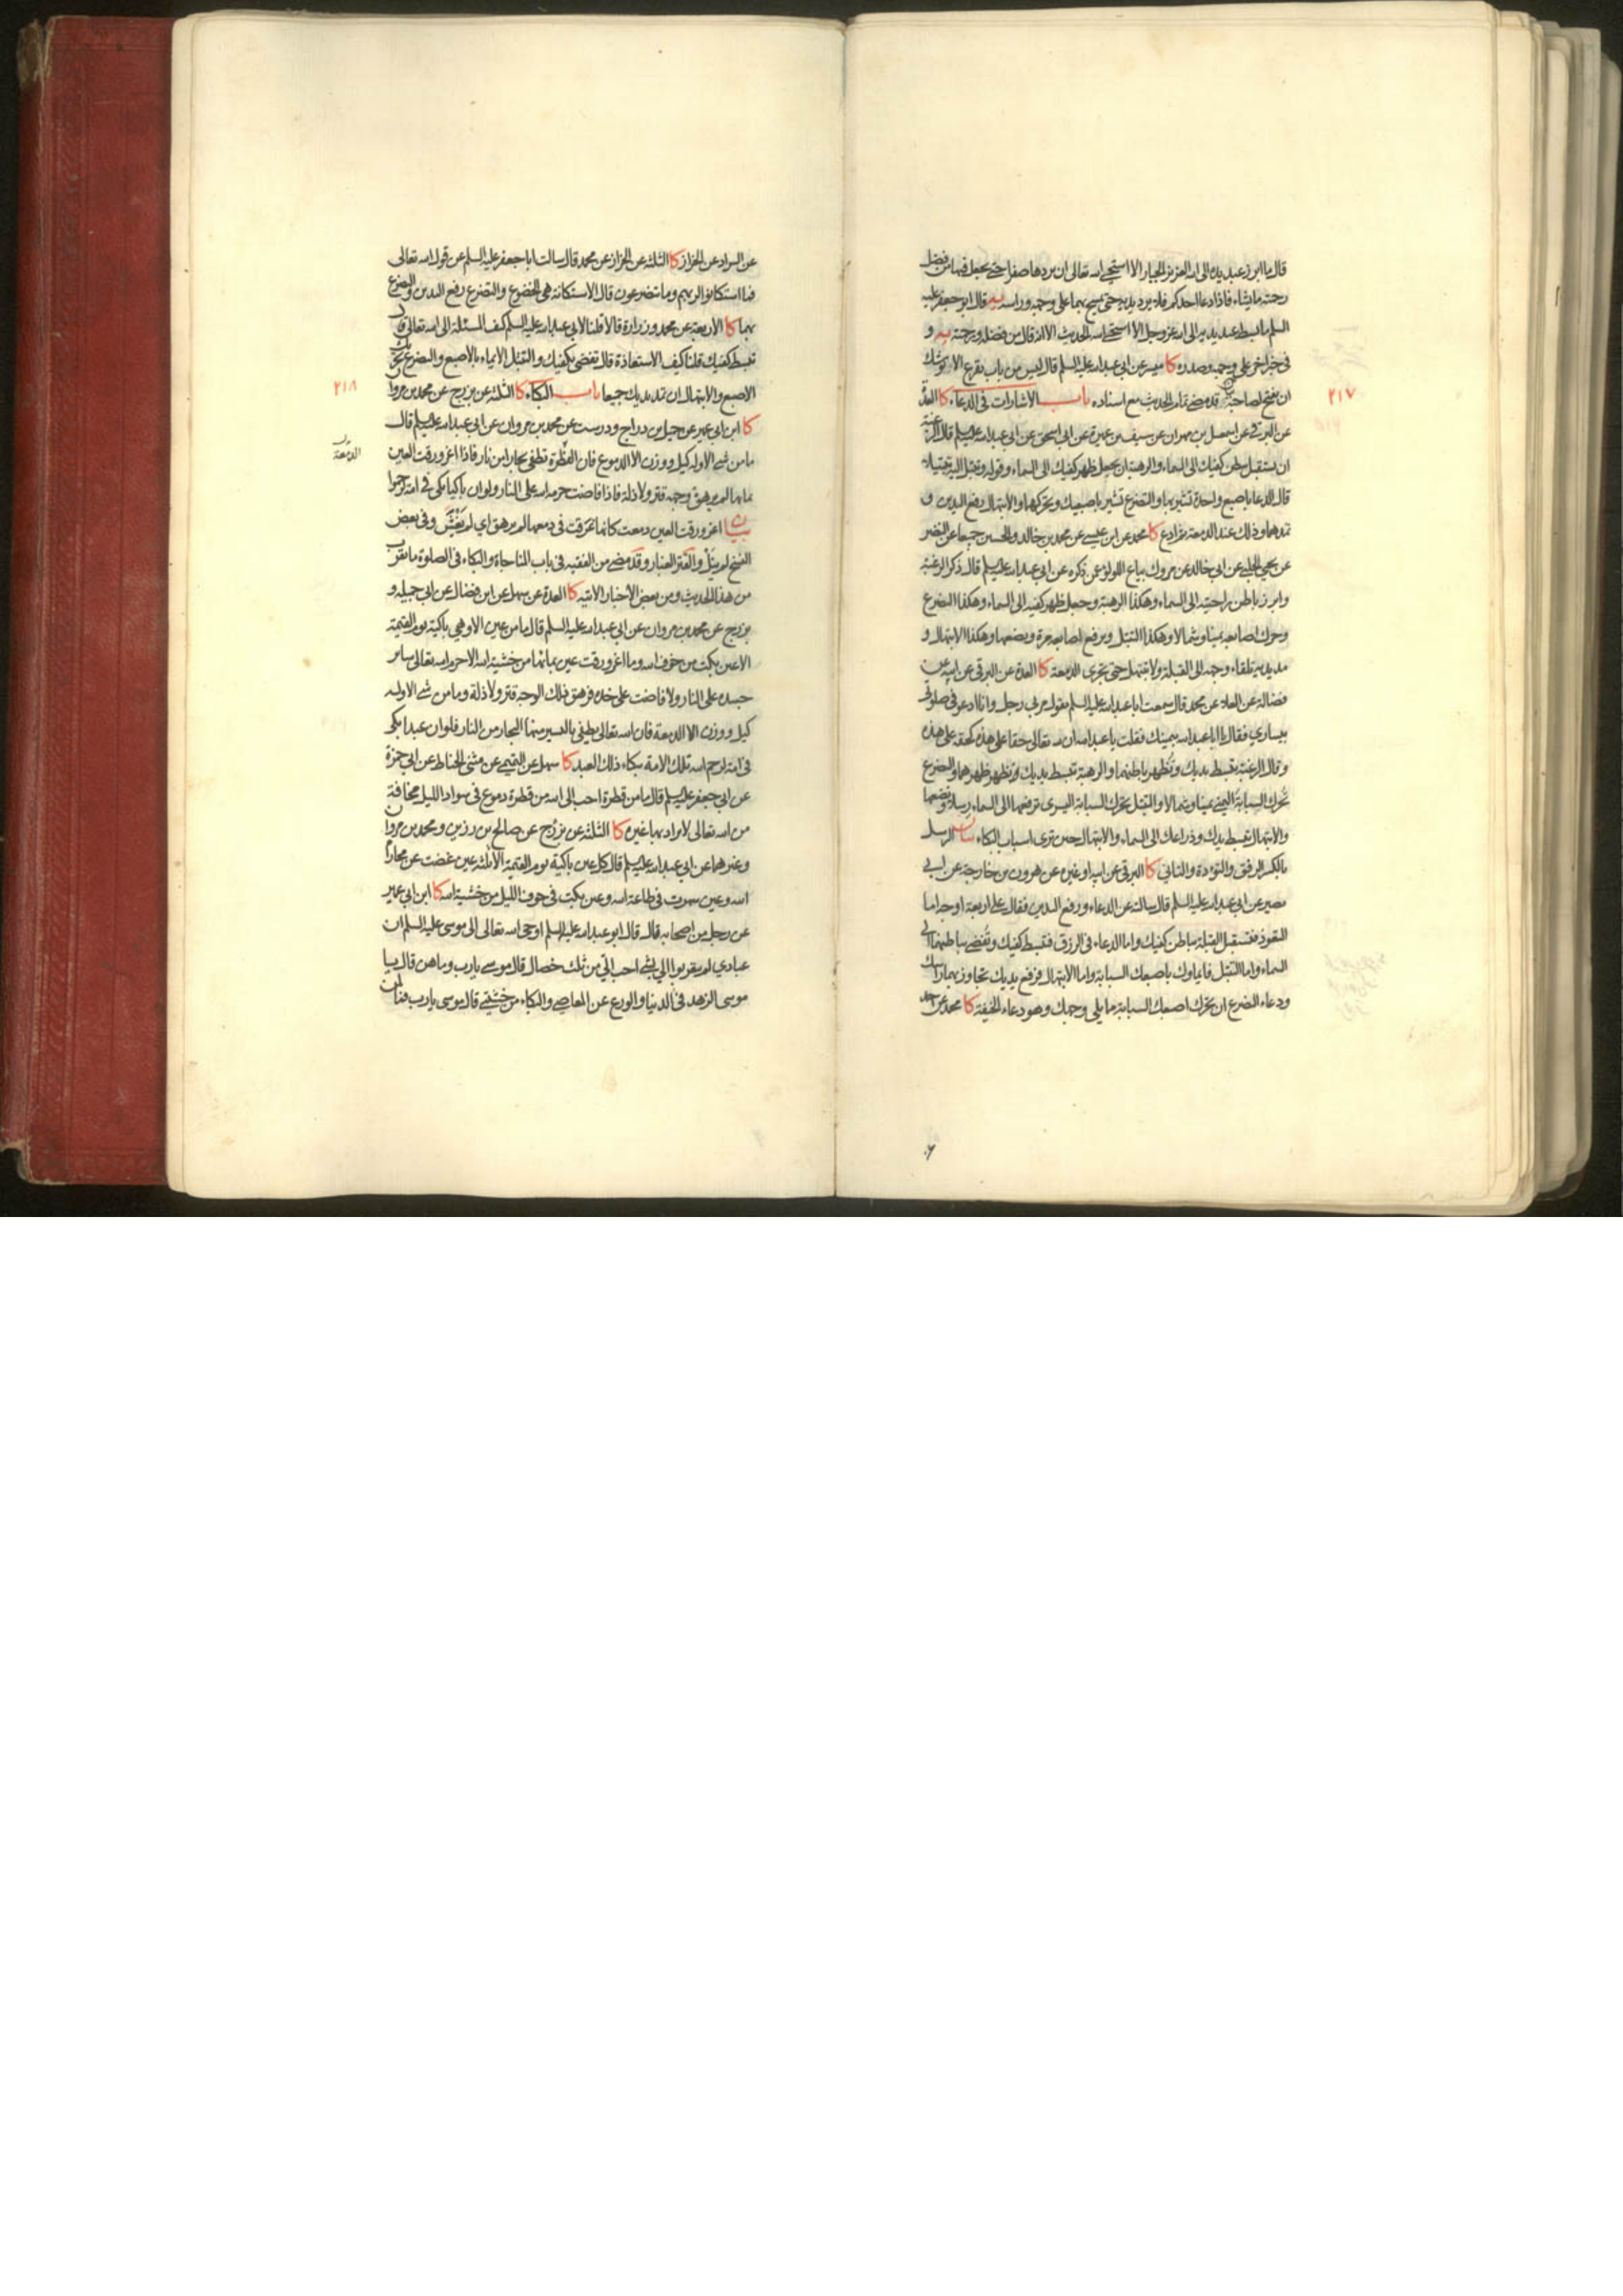 قال ما ابرز عبد يده الى الله العزيز الجبار الا استحيى الله تعالى ان يردها صفرا حتى يجعل فيها من فضل
رحمته ما يشاء فاذا دعا احدكم فلا يرد يديه حتى يمسح بهما على وجهه وراسه يه قال ابو جعفر عليه
السلم ما بسط عبد يديه الى الله عز وجل الا استحيى الله الحديث الا انه قال من فضله ورحمته يه و
فى خبر اخر على وجهه وصدره كا ميسر عن ابى عبد الله عليه السلم قال ليس من باب يقرع الا يوشك
ان يفتح لصاحبه قد مضى تمام الحديث مع اسناده باب الاشارات فى الدعاء كا العدة
٢١٧
عن البرقى عن اسمعيل بن مهران عن سيف بن عميرة عن ابى اسحق عن ابى عبد الله عليه السلم قال الرغبة
ان يستقبل ببطن كفيك الى السماء والرهبة ان يجعل ظهر كفيك الى السماء وقوله وتبتل اليه تبتيلا
قال الدعا باصبع واحدة تشير بها والتضرع تشير باصبعيك وتحركهما والابتهال رفع اليدين و
تمدهما وذلك عند الدمعة ثم ادع كا محمد عن ابن عيسى عن محمد بن خالد والحسين جميعا عن النضر
عن يحيى الحلبى عن ابى خالد عن مروك بياع اللولو عمن ذكره عن ابى عبد الله عليه السلم قال ذكر الرغبة
وابرز باطن راحتيه الى السماء وهكذا الرهبة وجعل ظهر كفيه الى السماء وهكذا التضرع
وحرك اصابعه يمينا وشمالا وهكذا التبتل ويرفع اصابعه مرة ويضعها وهكذا الابتهال و
مد يديه تلقاء وجهه الى القبلة ولا تبتهل حتى تجرى الدمعة كا العدة عن البرقى عن ابيه عن
فضالة عن العلاء عن محمد قال سمعت ابا عبد الله عليه السلم يقول مر بى رجل وانا ادعو فى صلوتى
بيسارى فقال يا ابا عبد الله بيمينك فقلت يا عبد الله ان لله تعالى حقا على هذه كحقه على هذه
وقال الرغبة تبسط يديك وتظهر باطنهما والرهبة تبسط يديك وتظهر ظهرهما والتضرع
تحرك السبابة اليمنى يمينا وشمالا والتبتل تحرك السبابة اليسرى ترفعها الى السماء رسلا وتضعها
والابتهال تبسط يدك وذراعك الى السماء والابتهال حين ترى اسباب البكاء بيان الرسل
بالكسر الرفق والتؤدة والتانى كا البرقى عن ابيه او غيره عن هرون بن خارجة عن ابى
بصير عن ابى عبد الله عليه السلم قال سالته عن الدعاء ورفع اليدين فقال على اربعة اوجه اما
التعوذ فتستقبل القبلة بباطن كفيك واما الدعاء فى الرزق فتبسط كفيك وتفضى بباطنهما الى
السماء واما التبتل فايماوك باصبعك السبابة واما الابتهال فرفع يديك تجاوز بهما راسك
ودعاء التضرع ان تحرك اصبعك السبابة مما يلى وجهك وهو دعاء الخيفة كا محمد عن احمد
عن السراد عن الخزاز كا الثلثة عن الخزاز عن محمد قال سالت ابا جعفر عليه السلم عن قول الله تعالى
فما استكانوا لربهم وما يتضرعون قال الاستكانة هى الخضوع والتضرع رفع اليدين والتضرع
بهما كا الاربعة عن محمد وزرارة قالا قلنا لابى عبد الله عليه السلم كيف المسئلة الى الله تعالى قال
تبسط كفيك قلنا كيف الاستعاذة قال تفضى بكفيك والتبتل الايماء بالاصبع والتضرع تحريك
الاصبع والابتهال ان تمد يديك جميعا باب البكاء كا الثلثة عن بزرج عن محمد بن مروان
٢١٨
كا ابن ابى عمير عن جميل بن دراج ودرست عن محمد بن مروان عن ابى عبد الله عليه السلم قال
ما من شى الا وله كيل ووزن الا الدموع فان القطرة تطفى بحارا من نار فاذا اغرورقت العين
بمائها لم يرهق وجهه قتر ولا ذلة فاذا فاضت حرمه الله على النار ولو ان باكيا بكى فى امة لرحموا
بيان اغرورقت العين دمعت كانما غرقت فى دمعها لم يرهق اى لم يغش وفى بعض
النسخ لم ينل والقتر الغبار وقد مضى من الفقيه فى باب المناجاة والبكاء فى الصلوة ما يقرب
من هذا الحديث ومن بعض الاخبار الاتيه كا العدة عن سهل عن ابن فضال عن ابى جميله و
بزرج عن محمد بن مروان عن ابى عبد الله عليه السلم قال ما من عين الا وهى باكية يوم القيمة
الا عين بكت من خوف الله وما اغرورقت عين بمائها من خشية الله الا حرم الله تعالى سائر
جسده على النار ولا فاضت على خده فرهق ذلك الوجه قتر ولا ذلة وما من شى الا وله
كيل ووزن الا الدمعة فان الله تعالى يطفى باليسير منها البحار من النار فلو ان عبدا بكى
فى امة لرحم الله تلك الامة ببكاء ذلك العبد كا سهل عن التميمى عن مثنى الحناط عن ابى حمزة
عن ابى جعفر عليه السلم قال ما من قطرة احب الى الله من قطرة دموع فى سواد الليل مخافة
من الله تعالى لا يراد بها غيره كا الثلثة عن بزرج عن صالح بن رزين ومحمد بن مروان
وغيرهما عن ابى عبد الله عليه السلم قال كل عين باكية يوم القيمة الا ثلثة عين غضت عن محارم
الله وعين سهرت فى طاعة الله وعين بكت فى جوف الليل من خشية الله كا ابن ابى عمير
عن رجل من اصحابه قال قال ابو عبد الله عليه السلم اوحى الله تعالى الى موسى عليه السلم ان
عبادى لم يتقربوا الى بشى احب الى من ثلث خصال قال موسى يارب وما هن قال يا
موسى الزهد فى الدنيا والورع عن المعاصى والبكاء من خشيتى قال موسى يارب فما لمن